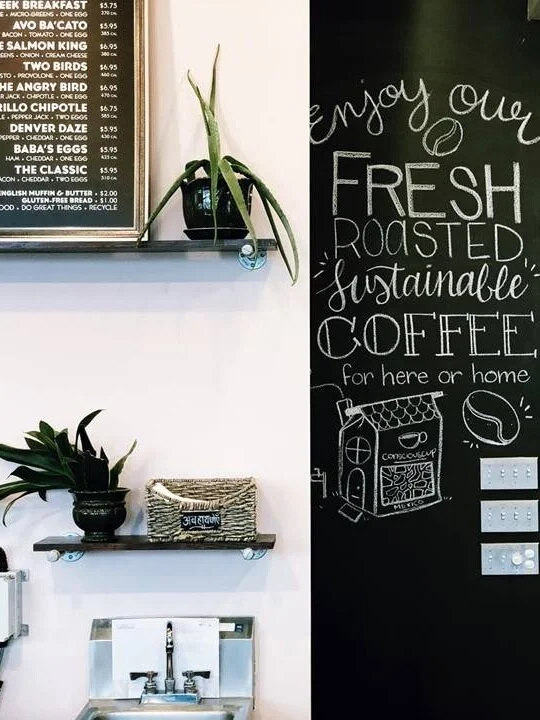 EEK BREAKFAST $5.75
MICRO-GREENS • ONE EGG 370 CAL
AVO BA'CATO $5.95
BACON • TOMATO • ONE EGG 385 CAL
E SALMON KING $6.95
EENS • ONION • CREAM CHEESE 380 CAL
TWO BIRDS $6.95
STO • PROVOLONE • ONE EGG 460 CAL
HE ANGRY BIRD $6.95
PER JACK • CHIPOTLE • ONE EGG 470 CAL
RILLO CHIPOTLE $6.75
LE • PEPPER JACK • TWO EGGS 585 CAL
DENVER DAZE $5.95
PEPPER • CHEDDAR • ONE EGG 430 CAL
BABA'S EGGS $5.95
HAM • CHEDDAR • ONE EGG 425 CAL
THE CLASSIC $5.95
BACON • CHEDDAR • TWO EGGS 510 CAL
ENGLISH MUFFIN & BUTTER • $2.00
GLUTEN-FREE BREAD • $1.00
OOD • DO GREAT THINGS • RECYCLE
enjoy our
FRESH
ROASTED
Sustainable
COFFEE
for here or home
CONSCIOUS CUP
MEXICO